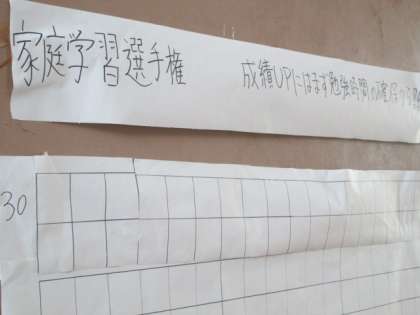 家庭学習選手権 成績UPにはまず勉強時間の確保から
30